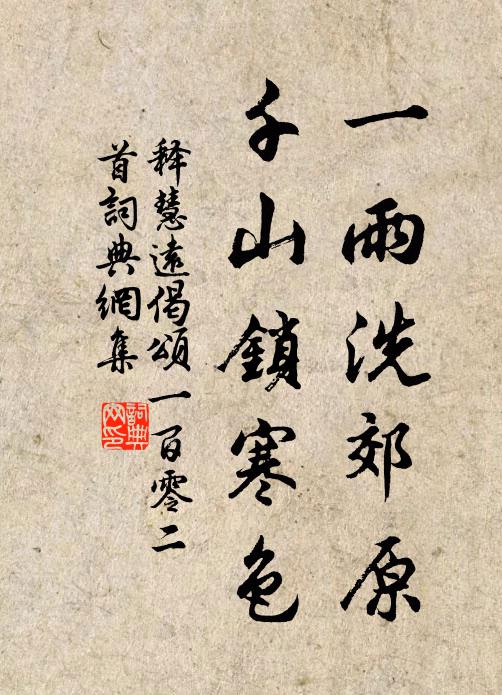 一雨洗郊原
千山鎖寒色
释慧遠偈頌一百零二
首詞典網集
詞典網印